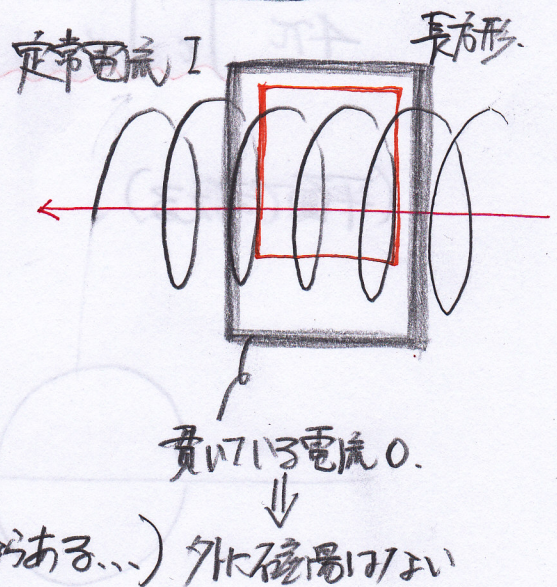 定常電流 I
長方形.
貫いている電流 0.
⇓
らある...) 外に磁場はない